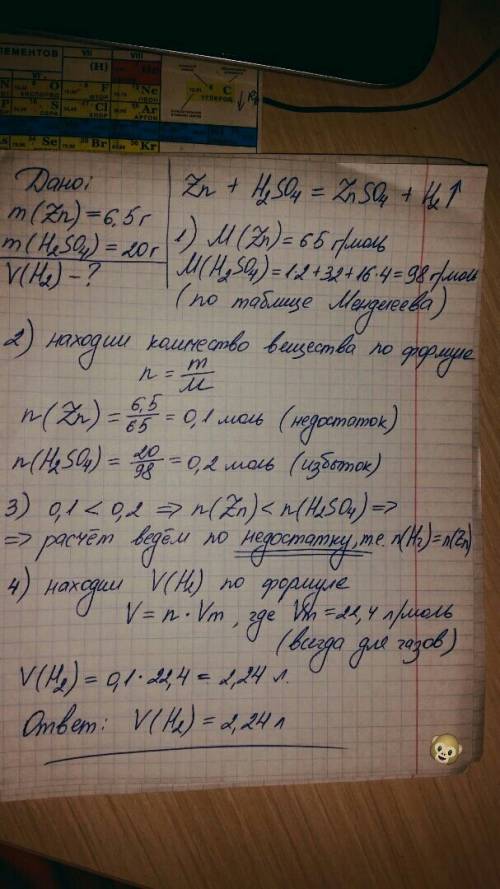 ЭЛЕМЕНТОВ
VII
VIII
VI
(H)
He
N
O
F
Ne
НЕОН
C
УГЛЕРОД
P
S
Cl
Ar
АРГОН
As
Se
Br
Kr
Дано:
m(Zn)=6,5 г
m(H₂SO₄)=20 г
V(H₂) – ?
Zn + H₂SO₄ = ZnSO₄ + H₂↑
1) M(Zn)=65 г/моль
M(H₂SO₄)=1·2+32+16·4=98 г/моль
(по таблице Менделеева)
2) находим количество вещества по формуле
n = m/M
n(Zn) = 6,5/65 = 0,1 моль (недостаток)
n(H₂SO₄) = 20/98 = 0,2 моль (избыток)
3) 0,1 < 0,2 => n(Zn) < n(H₂SO₄) =>
=> расчёт ведём по недостатку, т.е. n(H₂)=n(Zn)
4) находим V(H₂) по формуле
V = n · Vm, где Vm = 22,4 л/моль
(всегда для газов)
V(H₂) = 0,1 · 22,4 = 2,24 л.
Ответ: V(H₂) = 2,24 л